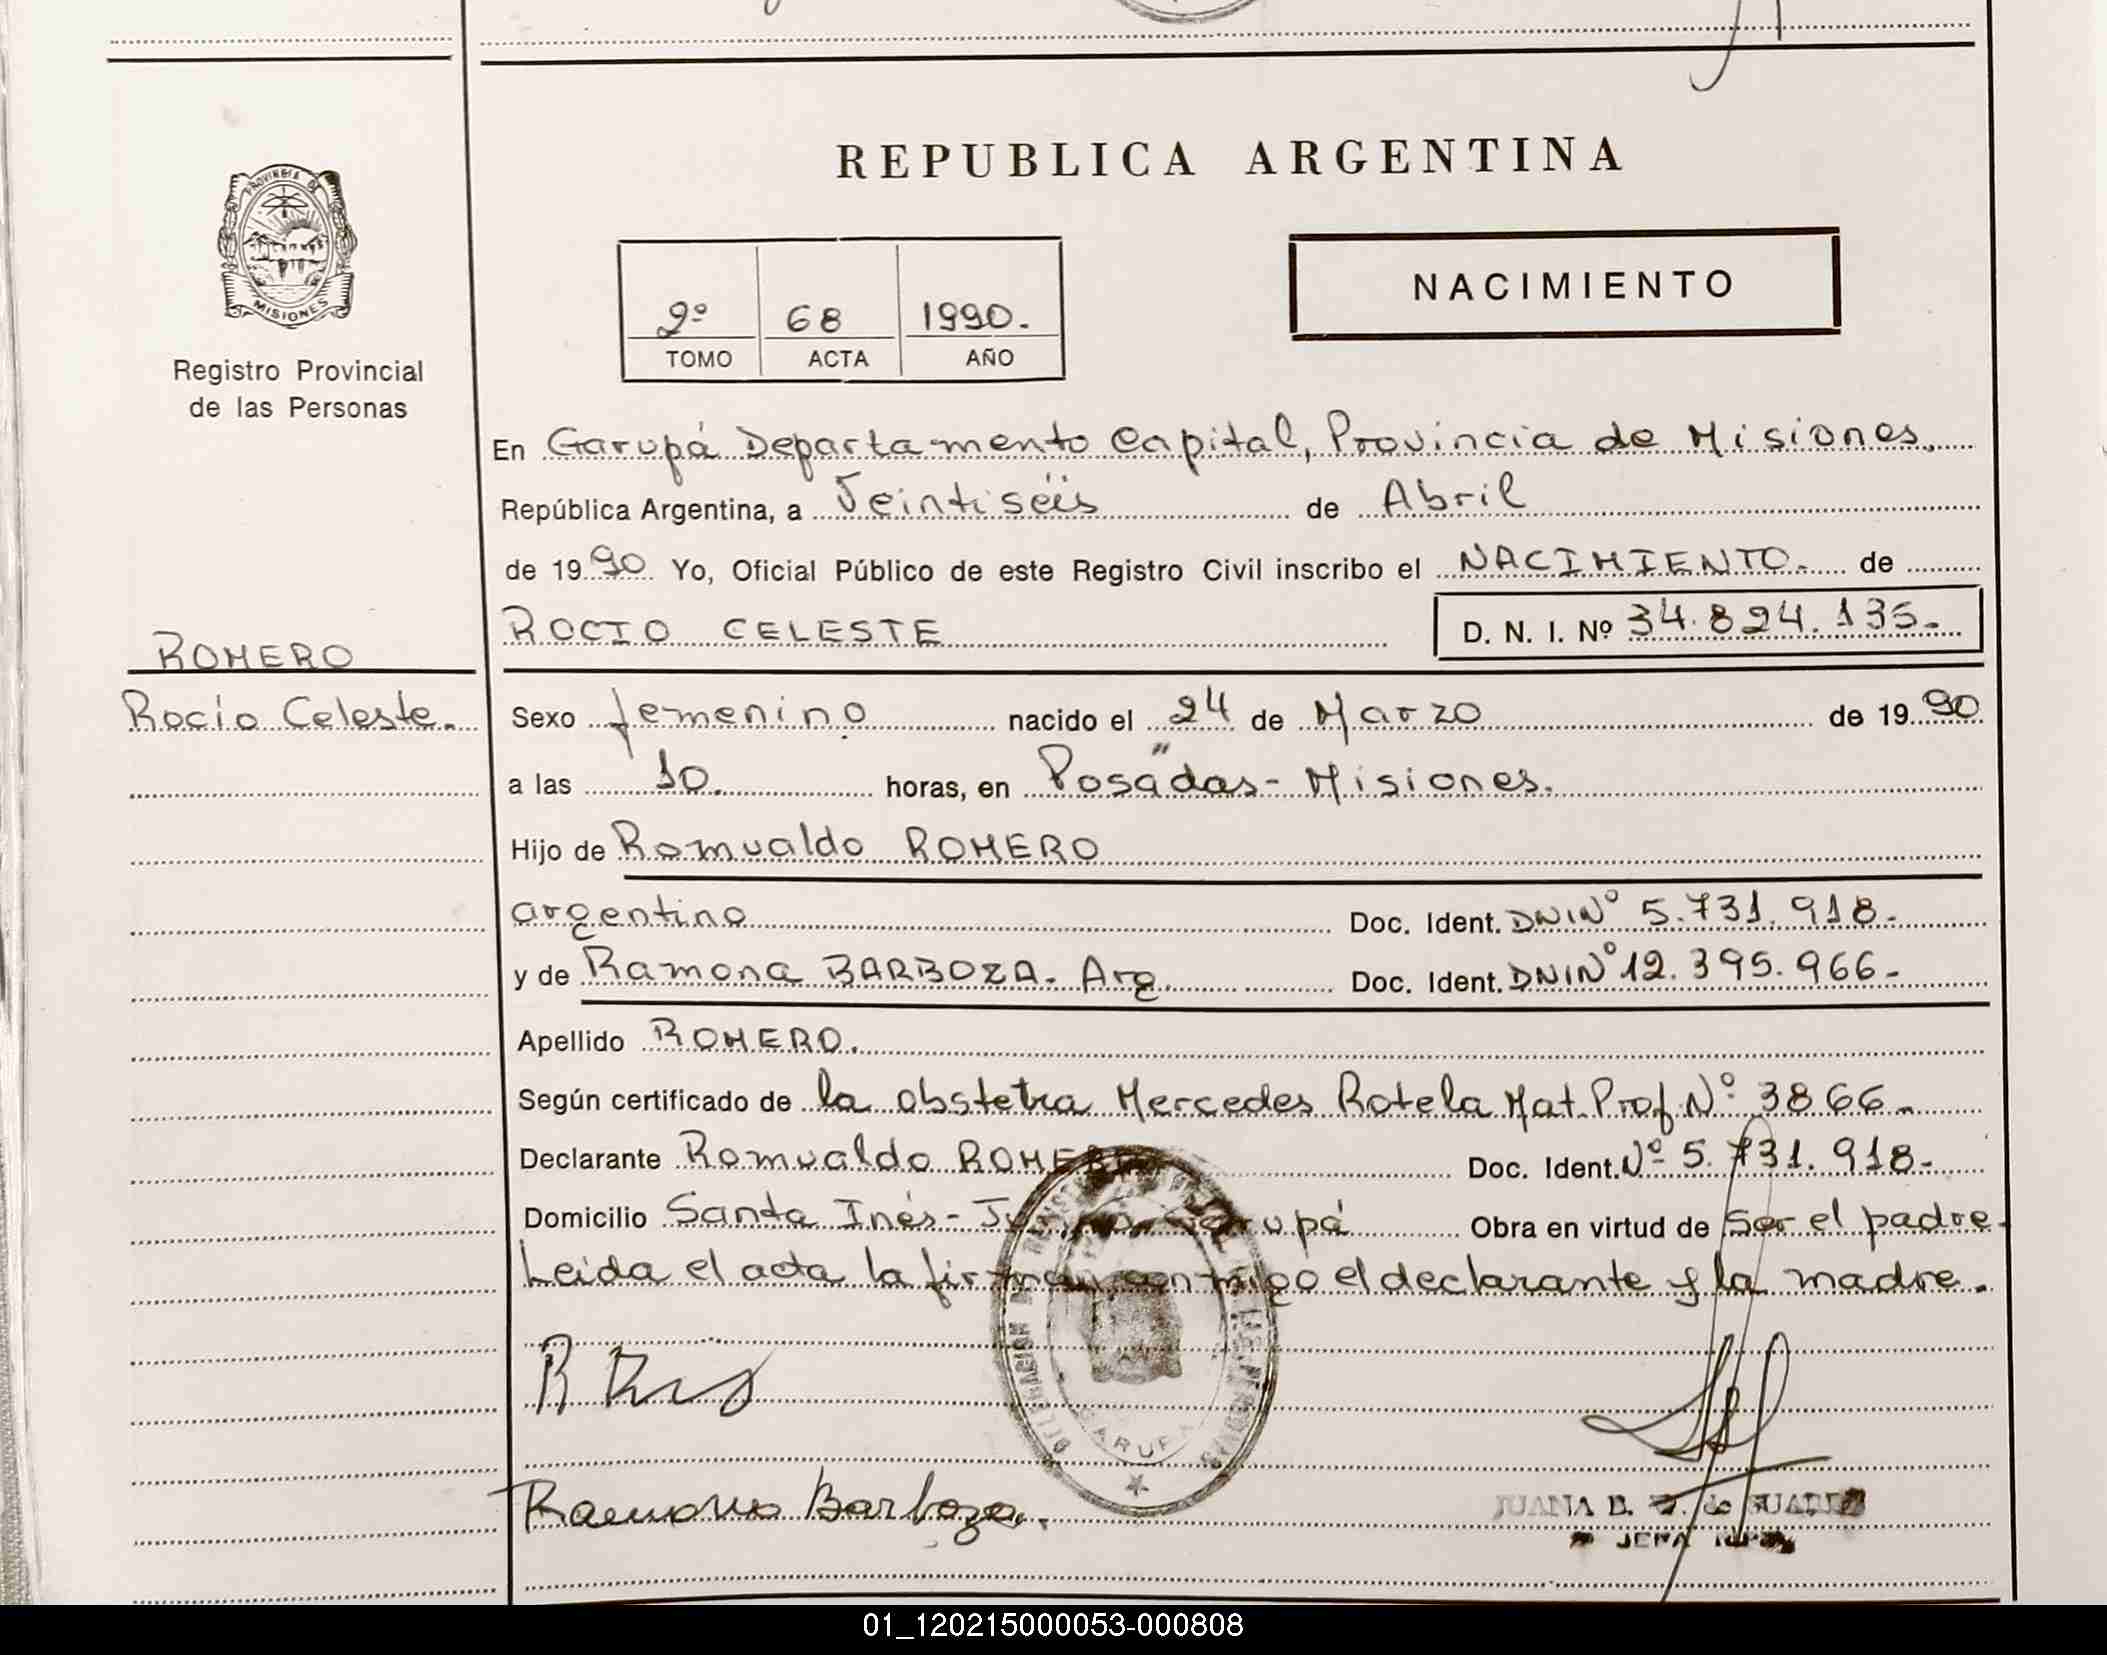 REPUBLICA ARGENTINA
PROVINCIA DE
MISIONES
Registro Provincial
de las Personas
NACIMIENTO
2º 68 1990.
TOMO ACTA AÑO
En Garupá Departamento Capital, Provincia de Misiones,
República Argentina, a Veintiséis de Abril
de 1990 Yo, Oficial Público de este Registro Civil inscribo el NACIMIENTO. de
ROCIO CELESTE D. N. I. Nº 34.824.135.-
ROMERO
Rocío Celeste.-
Sexo femenino nacido el 24 de Marzo de 1990
a las 10. horas, en Posadas - Misiones.
Hijo de Romualdo ROMERO
argentino Doc. Ident. DNI Nº 5.731.918.-
y de Ramona BARBOZA. Arg. Doc. Ident. DNI Nº 12.395.966.-
Apellido ROMERO.
Según certificado de la obstetra Mercedes Rotela Mat. Prof. Nº 3866.-
Declarante Romualdo ROMERO Doc. Ident. Nº 5.731.918.-
Domicilio Santa Inés - Garupá Obra en virtud de Ser el padre.
Leida el acta la firman conmigo el declarante y la madre.
GARUPA
Ramona Barboza.
JUANA B. de
JEFA
01_120215000053-000808